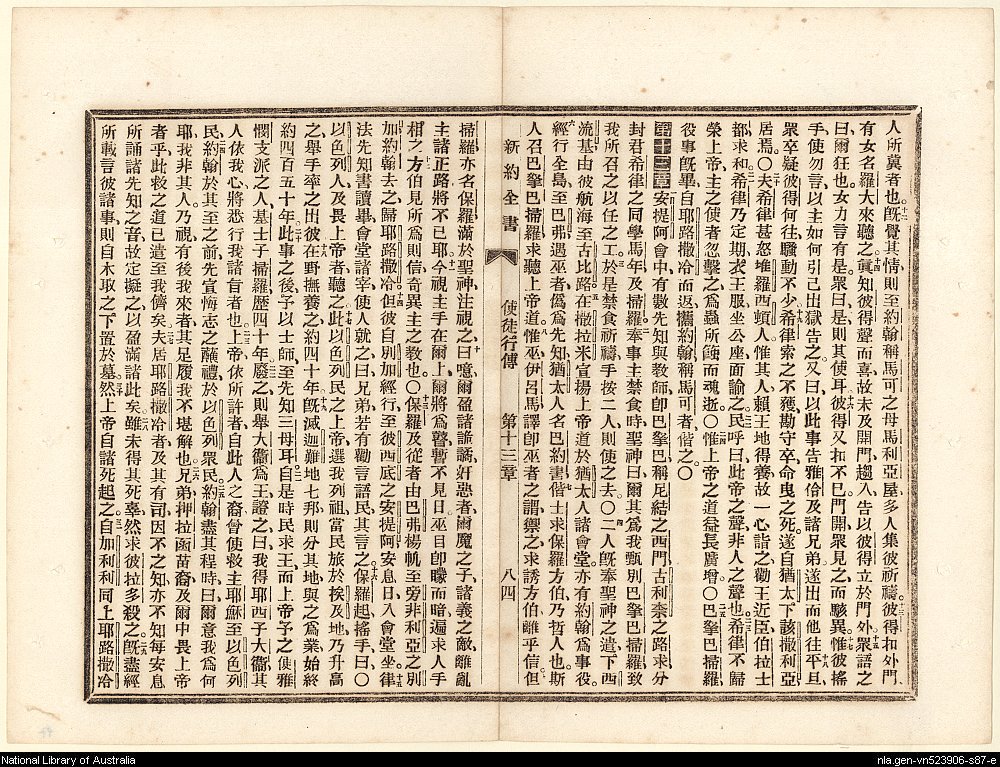 人所冀者也旣覺其情則至約翰稱馬可之母馬利亞屋多人集彼祈禱彼得扣外門
有女名羅大來聽之眞知彼得聲而喜故未及開門趨入告以彼得立於門外衆語之
曰爾狂也女力言有是衆曰是則其使耳彼得又扣不已門開衆見之而駭異惟彼搖
手使勿言以主如何引己出獄告之又曰以此事告雅各及諸兄弟遂出而他往平旦
衆卒疑彼得何往騷動不少希律索之不獲勘守卒命曳之死遂自猶太下該撒利亞
居焉〇夫希律甚怒堆羅西頓人惟其人賴王地得養故一心詣之勸王近臣伯拉士
都求和希律乃定期衣王服坐公座面諭之民呼曰此帝之聲非人之聲也希律不歸
榮上帝主之使者忽擊之爲蟲所蝕而魂逝〇惟上帝之道益長廣增〇巴拏巴掃羅
役事旣畢自耶路撒冷而返攜約翰稱馬可者偕之〇
第十三章安提阿會中有數先知與教師卽巴拏巴稱尼結之西門古利奈之路求分
封君希律之同學馬年及掃羅奉事主禁食時聖神曰爾其爲我甄別巴拏巴掃羅致
我所召之以任之工於是禁食祈禱手按二人則使之去〇二人旣奉聖神之遣下西
流基由彼航海至古比路在撒拉米宣揚上帝道於猶太人諸會堂亦有約翰爲事役
經行全島至巴弗遇巫者僞爲先知猶太人名巴約書偕士求保羅方伯乃哲人也斯
人召巴拏巴掃羅求聽上帝道惟巫伊呂馬譯卽巫者之謂禦之求誘方伯離乎信但
新約全書 使徒行傳 第十三章 八四
掃羅亦名保羅滿於聖神注視之曰噫爾盈諸詭譎奸惡者爾魔之子諸義之敵離亂
主諸正路將不已耶今視主手在爾上爾將爲瞽暫不見日巫目卽矇而暗遍求人手
相之方伯見所爲則信奇異主之教也〇保羅及從者由巴弗楊帆至旁非利亞之別
加約翰去之歸耶路撒冷但彼自別加經行至彼西底之安提阿安息日入會堂坐律
法先知書讀畢會堂諸宰使人就之曰兄弟若有勸言語民其言之保羅起搖手曰〇
以色列人及畏上帝者聽之此以色列民之上帝選我列祖當民旅於挨及地乃升高
之舉手率之出彼在野撫養之約四十年旣滅迦難地七邦則分其地與之爲業始終
約四百五十年此事之後予以士師至先知三母耳自是時民求王而上帝予之便雅
憫支派之人基士子掃羅歷四十年廢之則舉大衞爲王證之曰我得耶西子大衞其
人依我心將悉行我諸旨者也上帝依所許者自此人之裔曾使救主耶穌至以色列
民約翰於其至之前先宣悔志之蘸禮於以色列衆民約翰盡其程時曰爾意我爲何
耶我非其人乃視有後我來者其足履我不堪解也兄弟押拉函苗裔及爾中畏上帝
者乎此救之道已遣至我儕矣夫居耶路撒冷者及其有司因不之知亦不知每安息
所誦諸先知之音故定擬之以盈滿諸此矣雖未得其死辜然求彼拉多殺之旣盡經
所載言彼諸事則自木取之下置於墓然上帝自諸死起之自加利利同上耶路撒冷
National Library of Australia
nla.gen-vn523906-s87-e